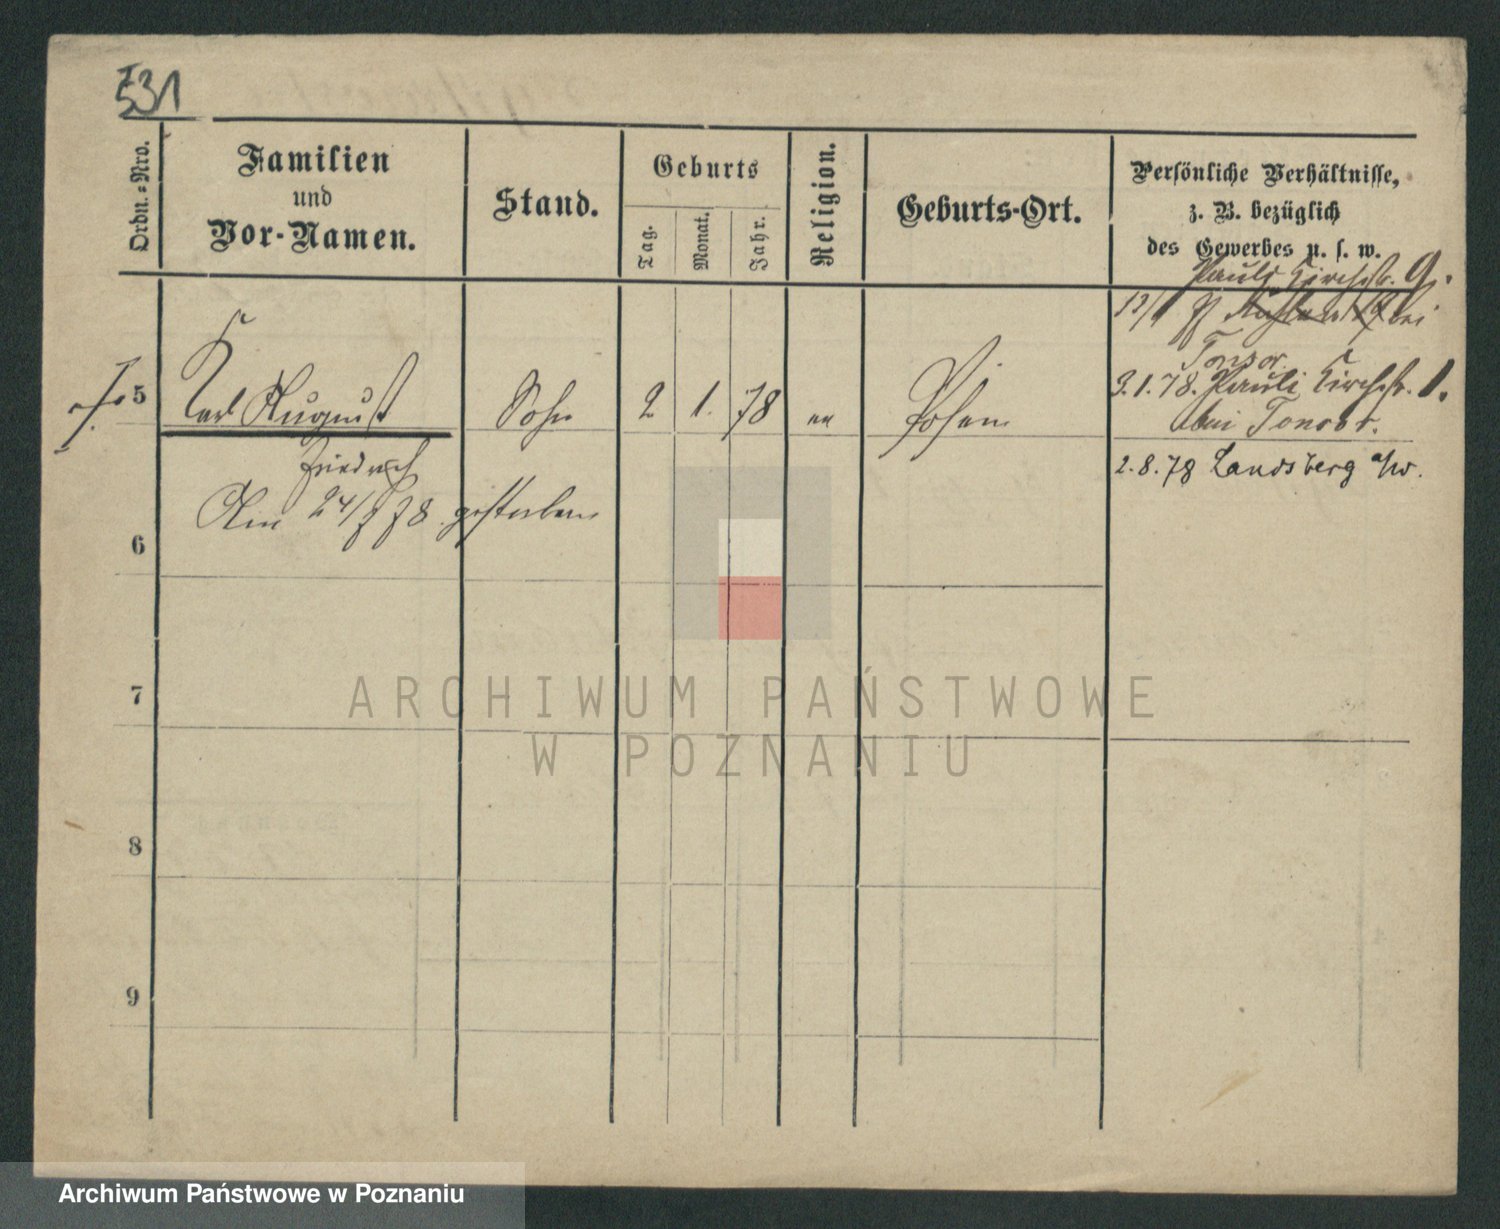 531
Ordn.-Nro.
Familien
und
Vor-Namen.
Stand.
Geburts
Tag.
Monat.
Jahr.
Religion.
Geburts-Ort.
Persönliche Verhältnisse,
z. B. bezüglich
des Gewerbes u. s. w.
Pauli Kirchstr. 9.
bei
Tonsor
5
Karl August
Friedrich
Sohn
2
1.
78
Posen
3.1.78. Pauli Kirchstr. 1.
bei Tonsor.
2.8.78 Landsberg a/W.
Am 24/7 78 gestorben
6
7
8
9
ARCHIWUM PAŃSTWOWE
W POZNANIU
Archiwum Państwowe w Poznaniu